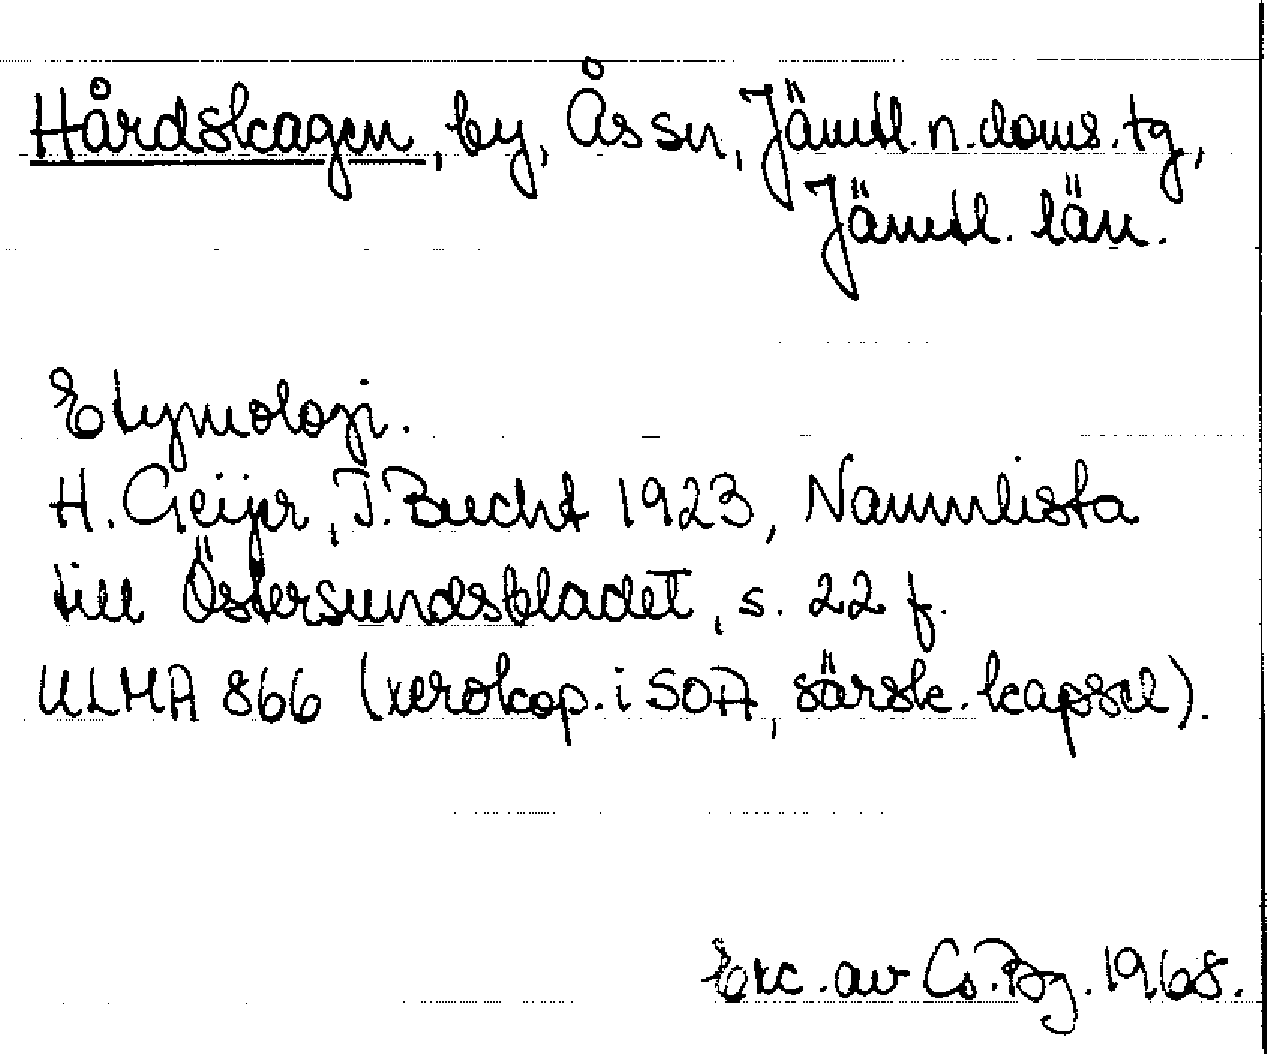 Hårdskagen, by, Ås sn, Jämtl. n. doms. tg,
Jämtl. län.
Etymologi.
H. Geijer, T. Bucht 1923, Namnlista
till Östersundsbladet, s. 22 f.
ULMA 866 (xerokop. i SOA, särsk. kapsel).
Exc. av Cs. Bg. 1968.